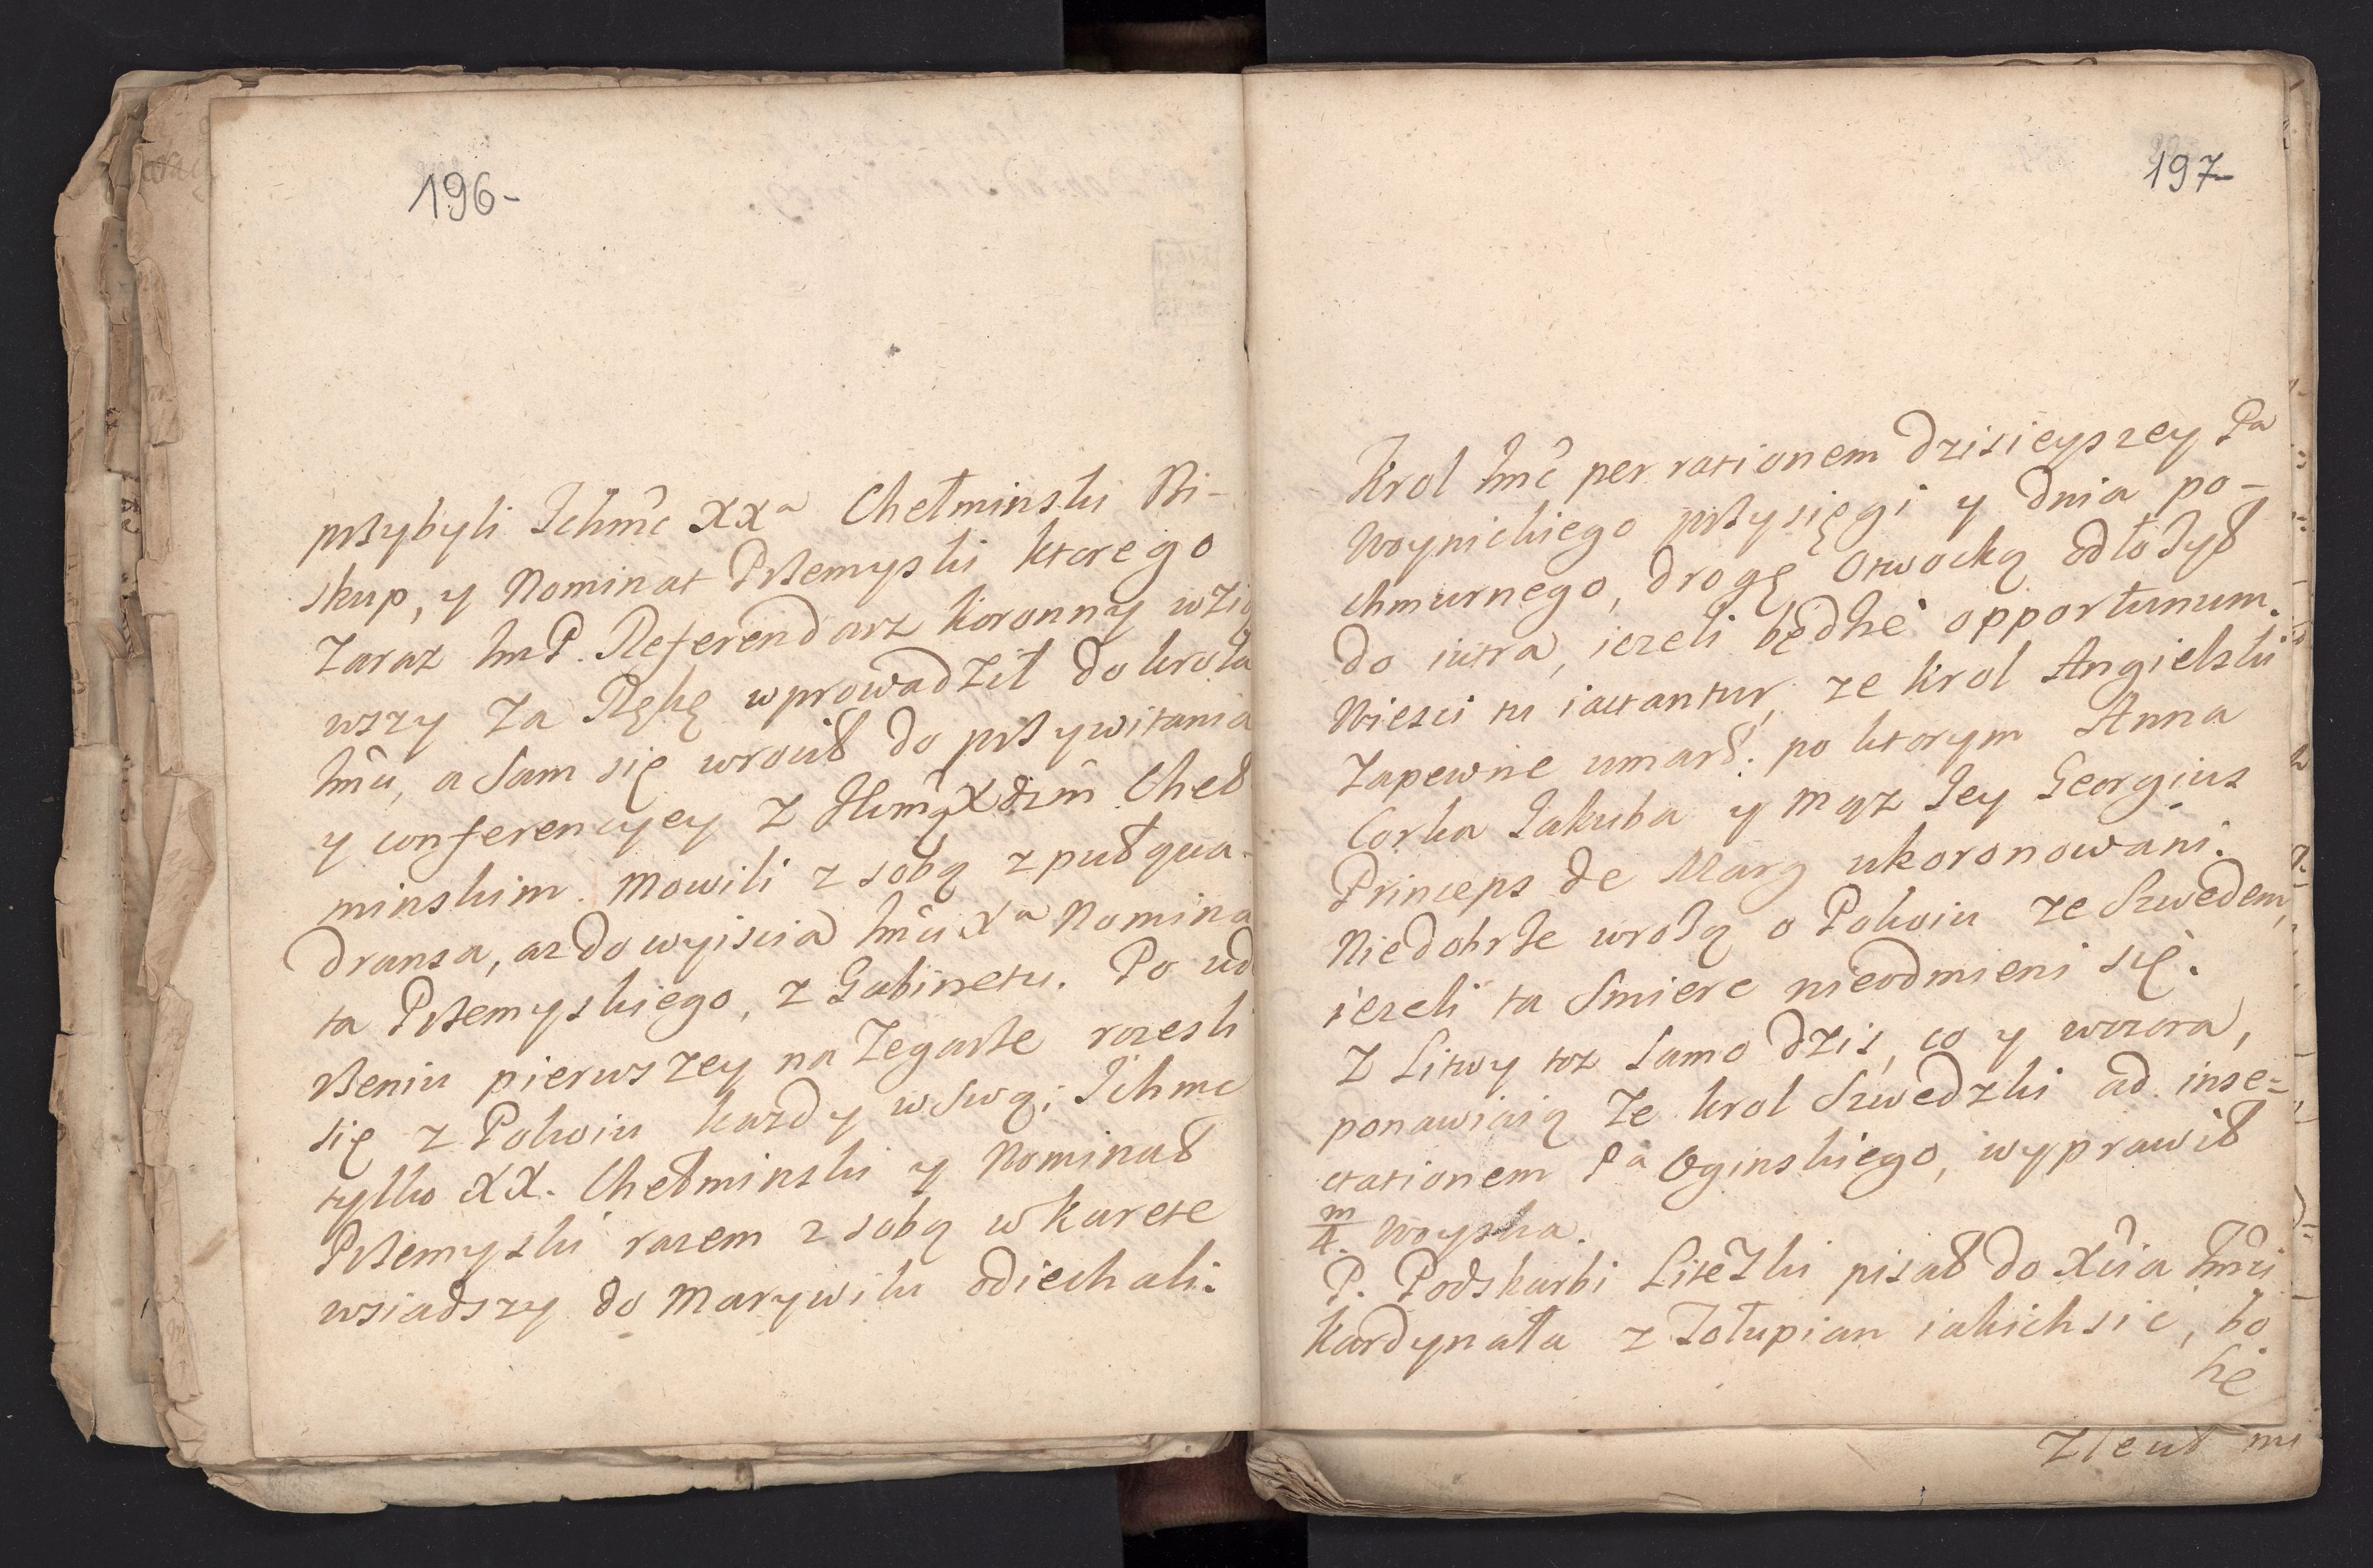 196-
przybyli Ichmć XXa Chełminski Bi-
skup, y Nominat Przemyski ktorego
zaraz ImP. Referendarz koronny wzią
wszy za Rękę wprowadził do krola
Imci, a sam się wrocił do przywitania
y conferencyey z Ihmć Xdzm Cheł
minskim. Mowili z sobą z puł qua-
dransa, az do wyiscia Imci Xa Nomina
ta Przemyskiego, z Gabinetu. Po ude
rzeniu pierwszey na Zegarze rozesli
się z Pokoiu kazdy w swą; Ichmc
tylko XX. Chełminski y Nominat
Przemyski razem z sobą w karete
wsiadszy do Marywilu odiechali.
197-
Krol Imć per rationem dzisieyszey Pa
Woynickiego przysięgi y dnia po-
chmurnego, drogę Otwocką odłożył
do iutra, iezeli będzie opportunum.
Wiesci tu iactantur, ze krol Angielski
zapewne umarł. po ktorym Anna
Corka Jakuba y mąz Jey Georgius
Princeps de Marg ukoronowani.
Niedobrze wrożą o Pokoiu ze Szwedem,
iezeli ta smierc nieodmieni się.
Z Litwy toz samo dzis, co y wczora,
ponawiaią ze krol Szwedzki ad inse-
ctationem Pa Oginskiego, wyprawił
m/4. woyska.
P. Podskarbi Litezki pisał do Xcia Imci
kardynała z Zołupian iakichsić, bo
he